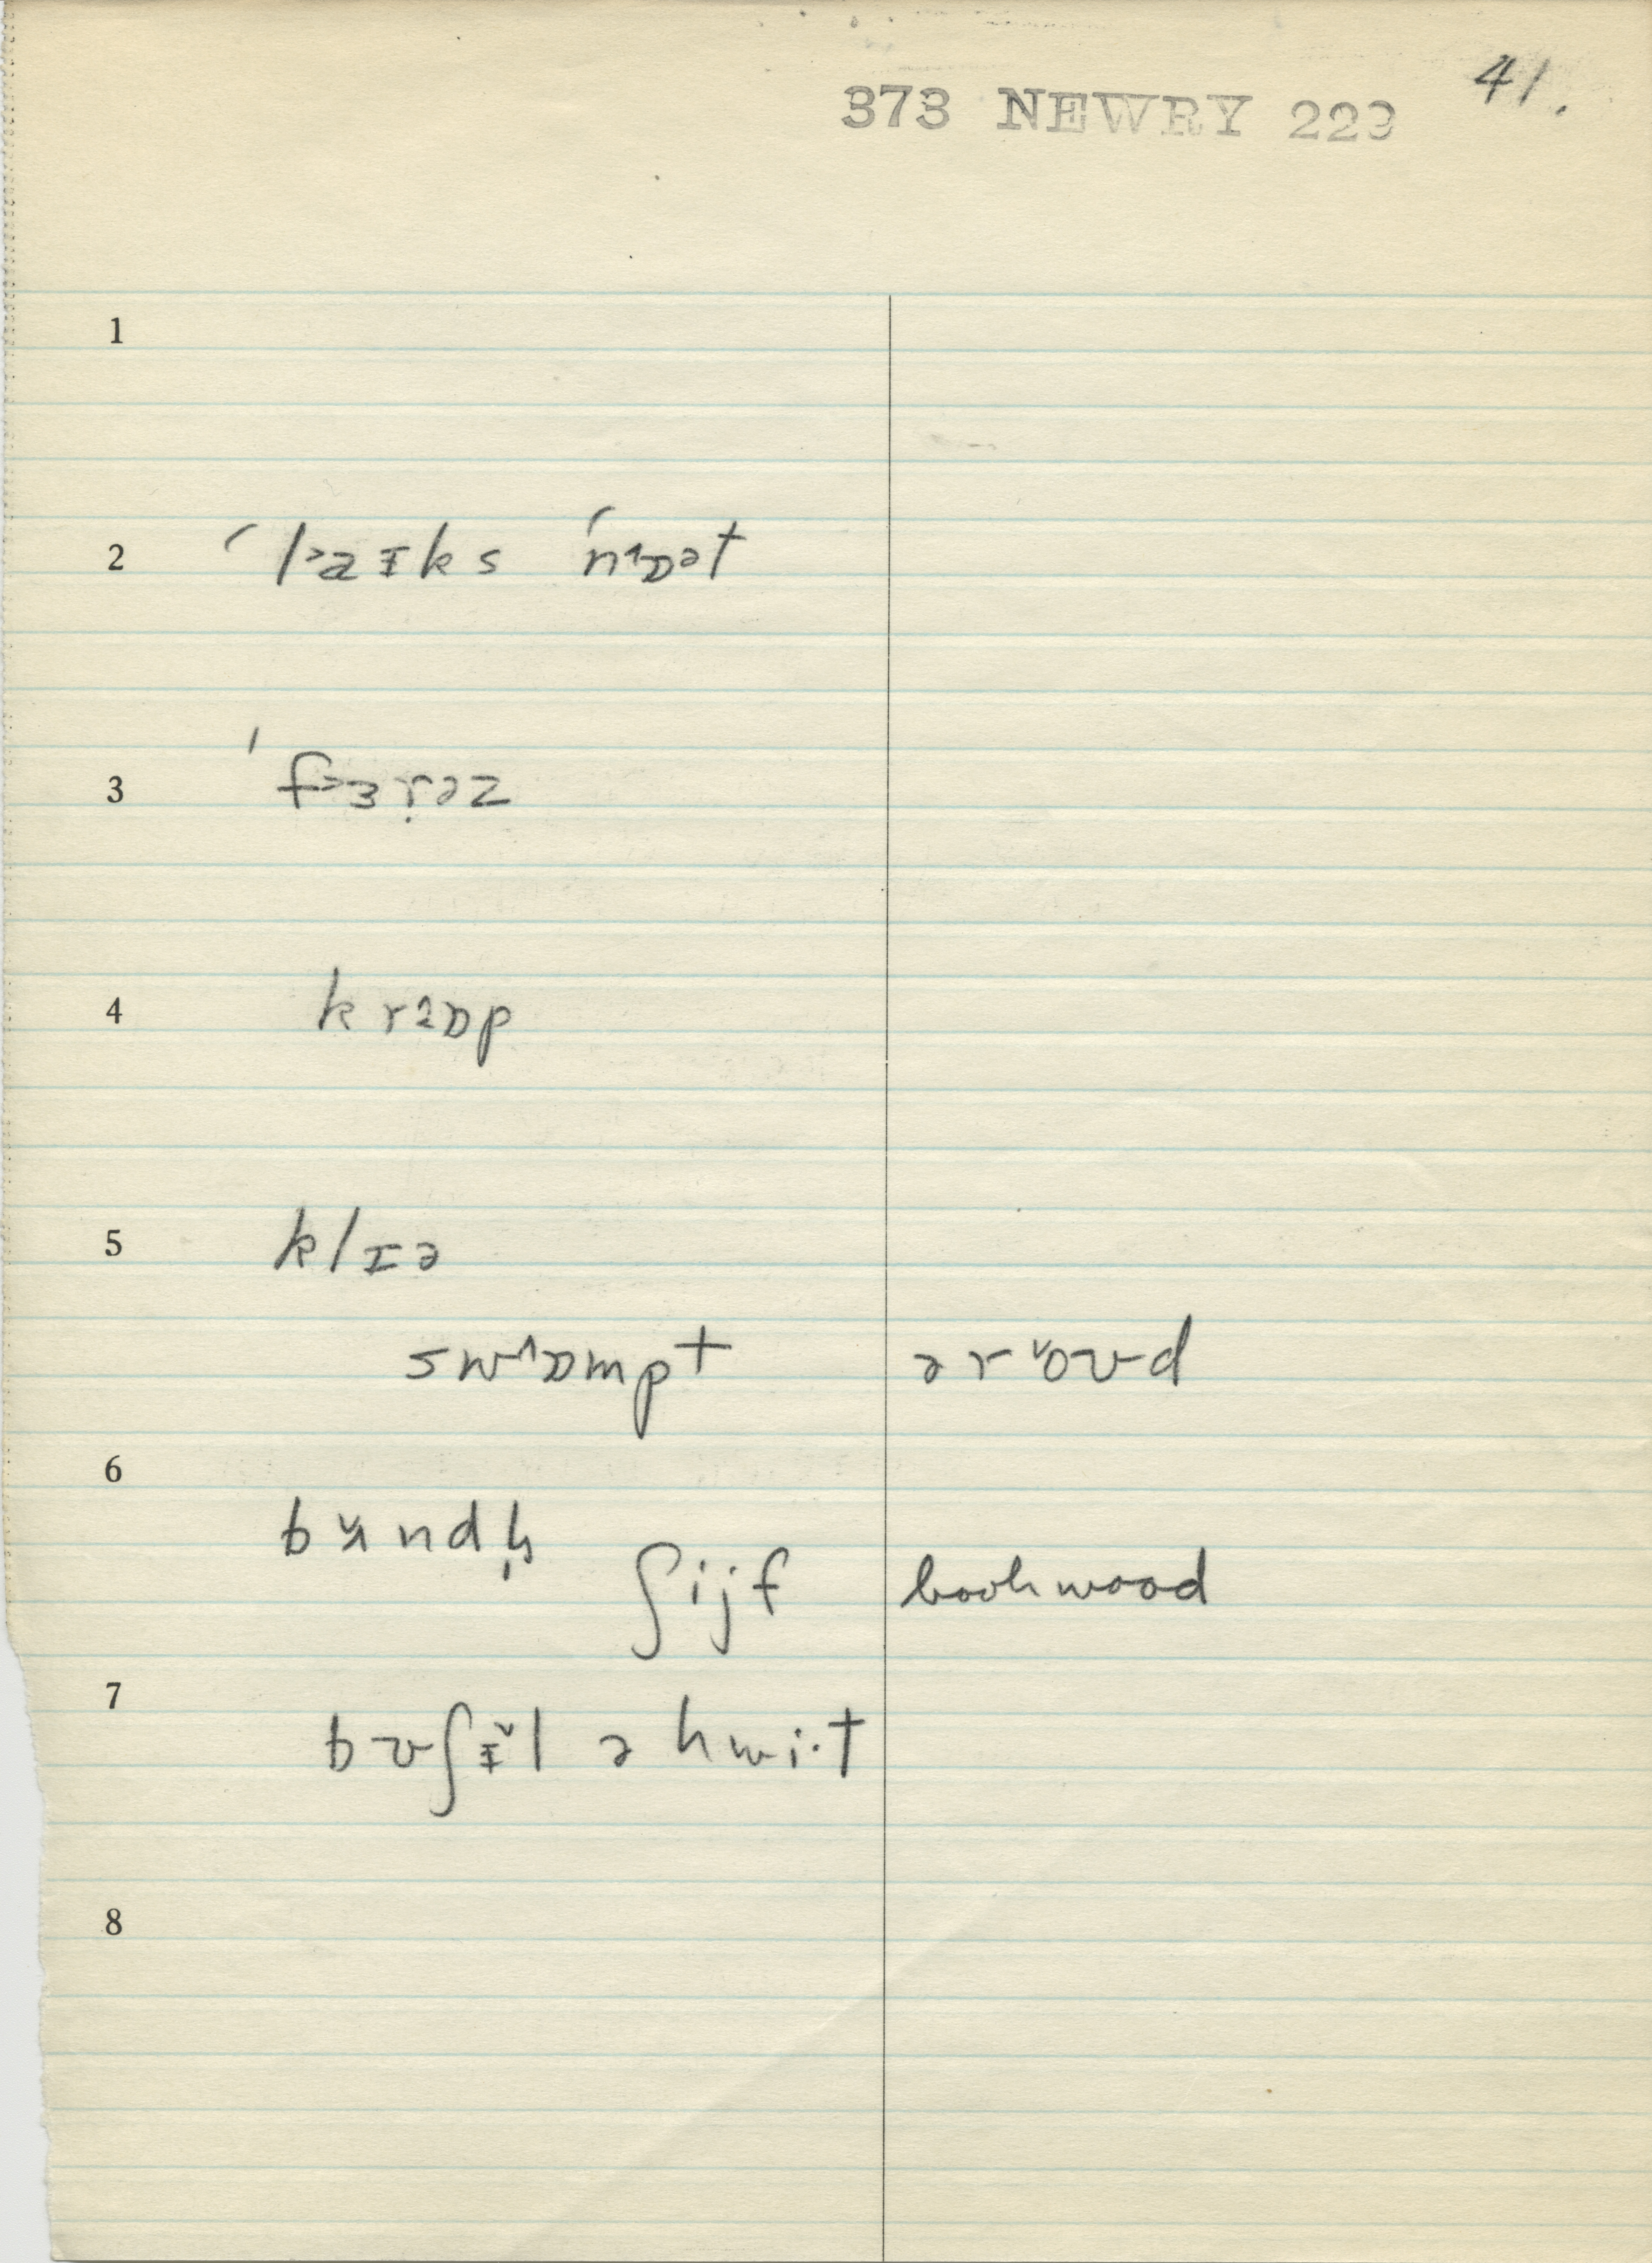 41.
373 NEWRY 229
1
2 ˈl˃aɪks ˈn˄ɒət
3 ˈf˃ɜṛəz
4 kr˄ɒp
5 klɪə
sw˄ɒmpt ər˅oʊd
6
b˅ʌndḷ
ʃijf bookwood
7
bʊʃɪ˅l ə hwi·t
8